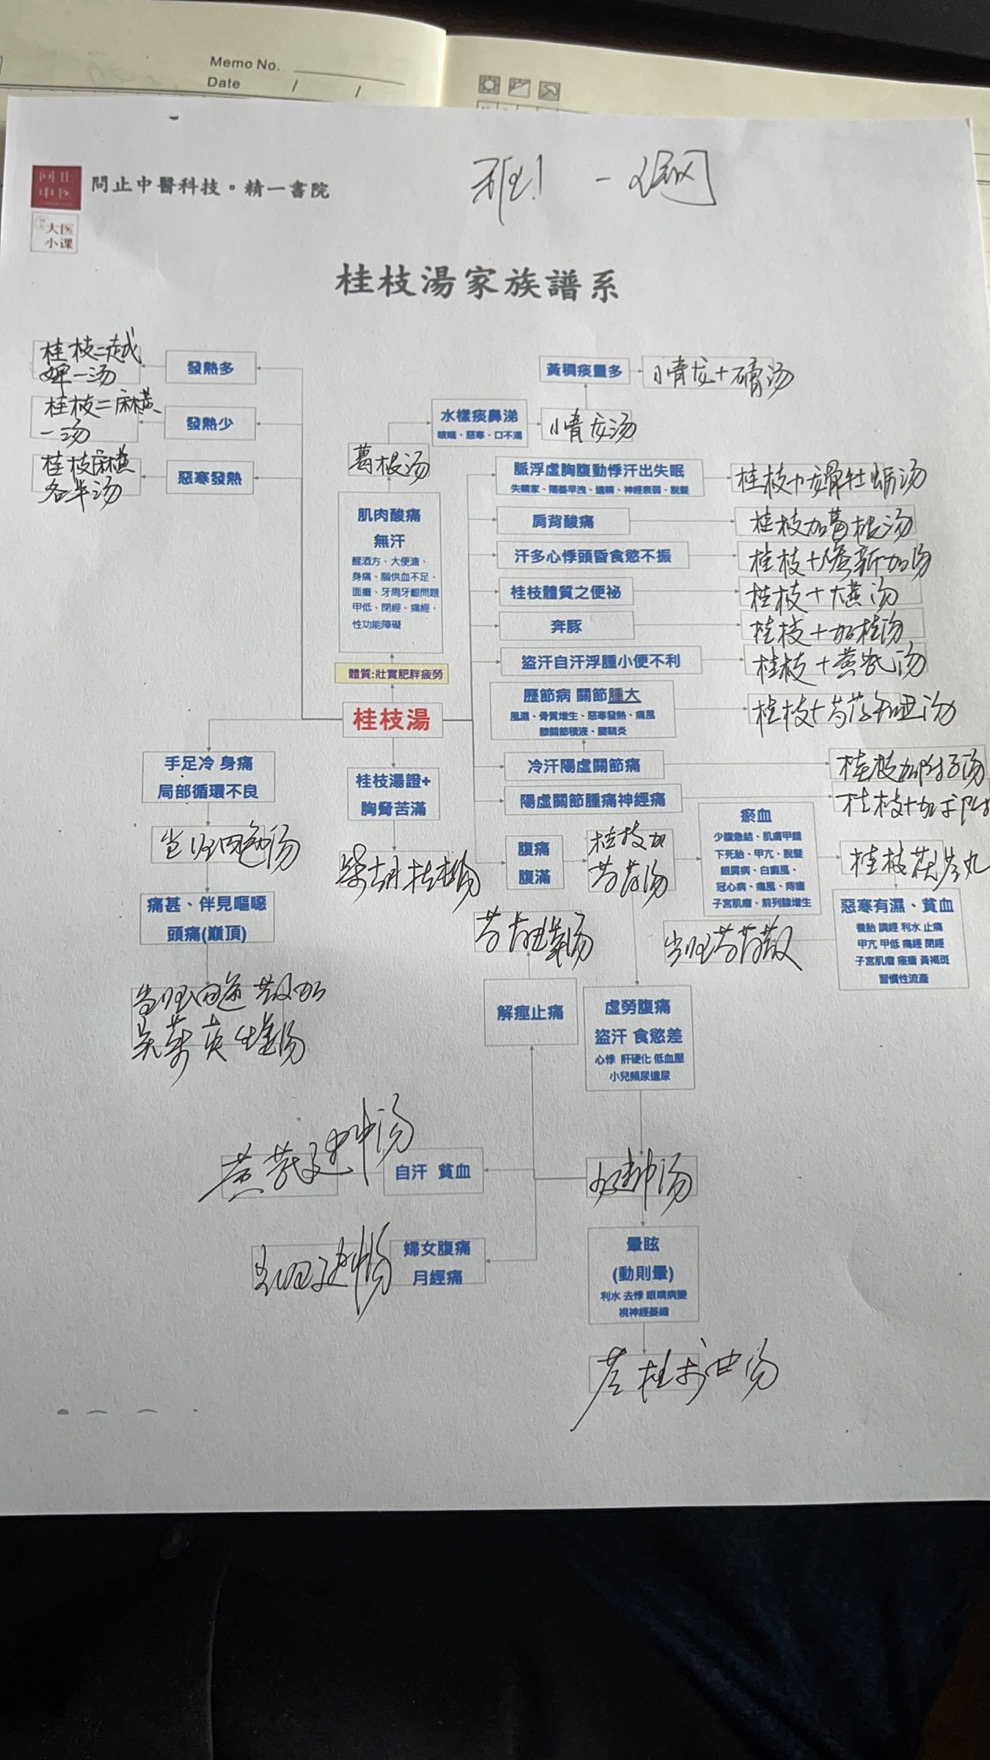 Memo No.
Date / /
問止中医
問止中醫科技。精一書院
大医
小课
一
桂枝湯家族譜系
桂枝二越
婢一汤
發熱多
桂枝二麻黄
一汤
發熱少
桂枝麻黄
各半汤
惡寒發熱
黃稠痰量多
小青龙+石膏汤
水樣痰鼻涕
咳喘、惡寒、口不渴
小青龙汤
葛根汤
肌肉酸痛
無汗
醒酒方、大便溏、
身痛、腦供血不足、
面癱、牙周牙齦問題
甲低、閉經、痛經、
性功能障礙
體質:壯實肥胖疲勞
桂枝湯
脈浮虛胸腹動悸汗出失眠
失精家、陽萎早洩、遺精、神經衰弱、脫髮
桂枝+龙骨牡蛎汤
肩背酸痛
桂枝加葛根汤
汗多心悸頭昏食慾不振
桂枝+新加汤
桂枝體質之便祕
桂枝+大黄汤
奔豚
桂枝+加桂汤
盜汗自汗浮腫小便不利
桂枝+黄芪汤
歷節病 關節腫大
風濕、骨質增生、惡寒發熱、痛風
膝關節積液、肩關炎
桂枝+芍药知母汤
冷汗陽虛關節痛
桂枝加附子汤
陽虛關節腫痛神經痛
桂枝+加术附
手足冷 身痛
局部循環不良
当归四逆汤
痛甚、伴見嘔噁
頭痛(巔頂)
当归四逆散加
吴茱萸生姜汤
桂枝湯證+
胸脅苦滿
柴胡桂枝汤
腹痛
腹滿
桂枝加
芍药汤
瘀血
少腹急結、肌膚甲錯
下死胎、甲亢、脫髮
銀屑病、白癜風、
冠心病、痛風、痔瘡
子宮肌瘤、前列腺增生
桂枝茯苓丸
惡寒有濕、貧血
養胎 調經 利水 止痛
甲亢 甲低 痛經 閉經
子宮肌瘤 痤瘡 黃褐斑
習慣性流產
当归芍药散
芍药甘草汤
解痙止痛
虛勞腹痛
盜汗 食慾差
心悸 肝硬化 低血壓
小兒頻尿遺尿
黄芪建中汤
自汗 貧血
小建中汤
当归建中汤
婦女腹痛
月經痛
暈眩
(動則暈)
利水 去悸 眼睛病變
視神經萎縮
苓桂术甘汤